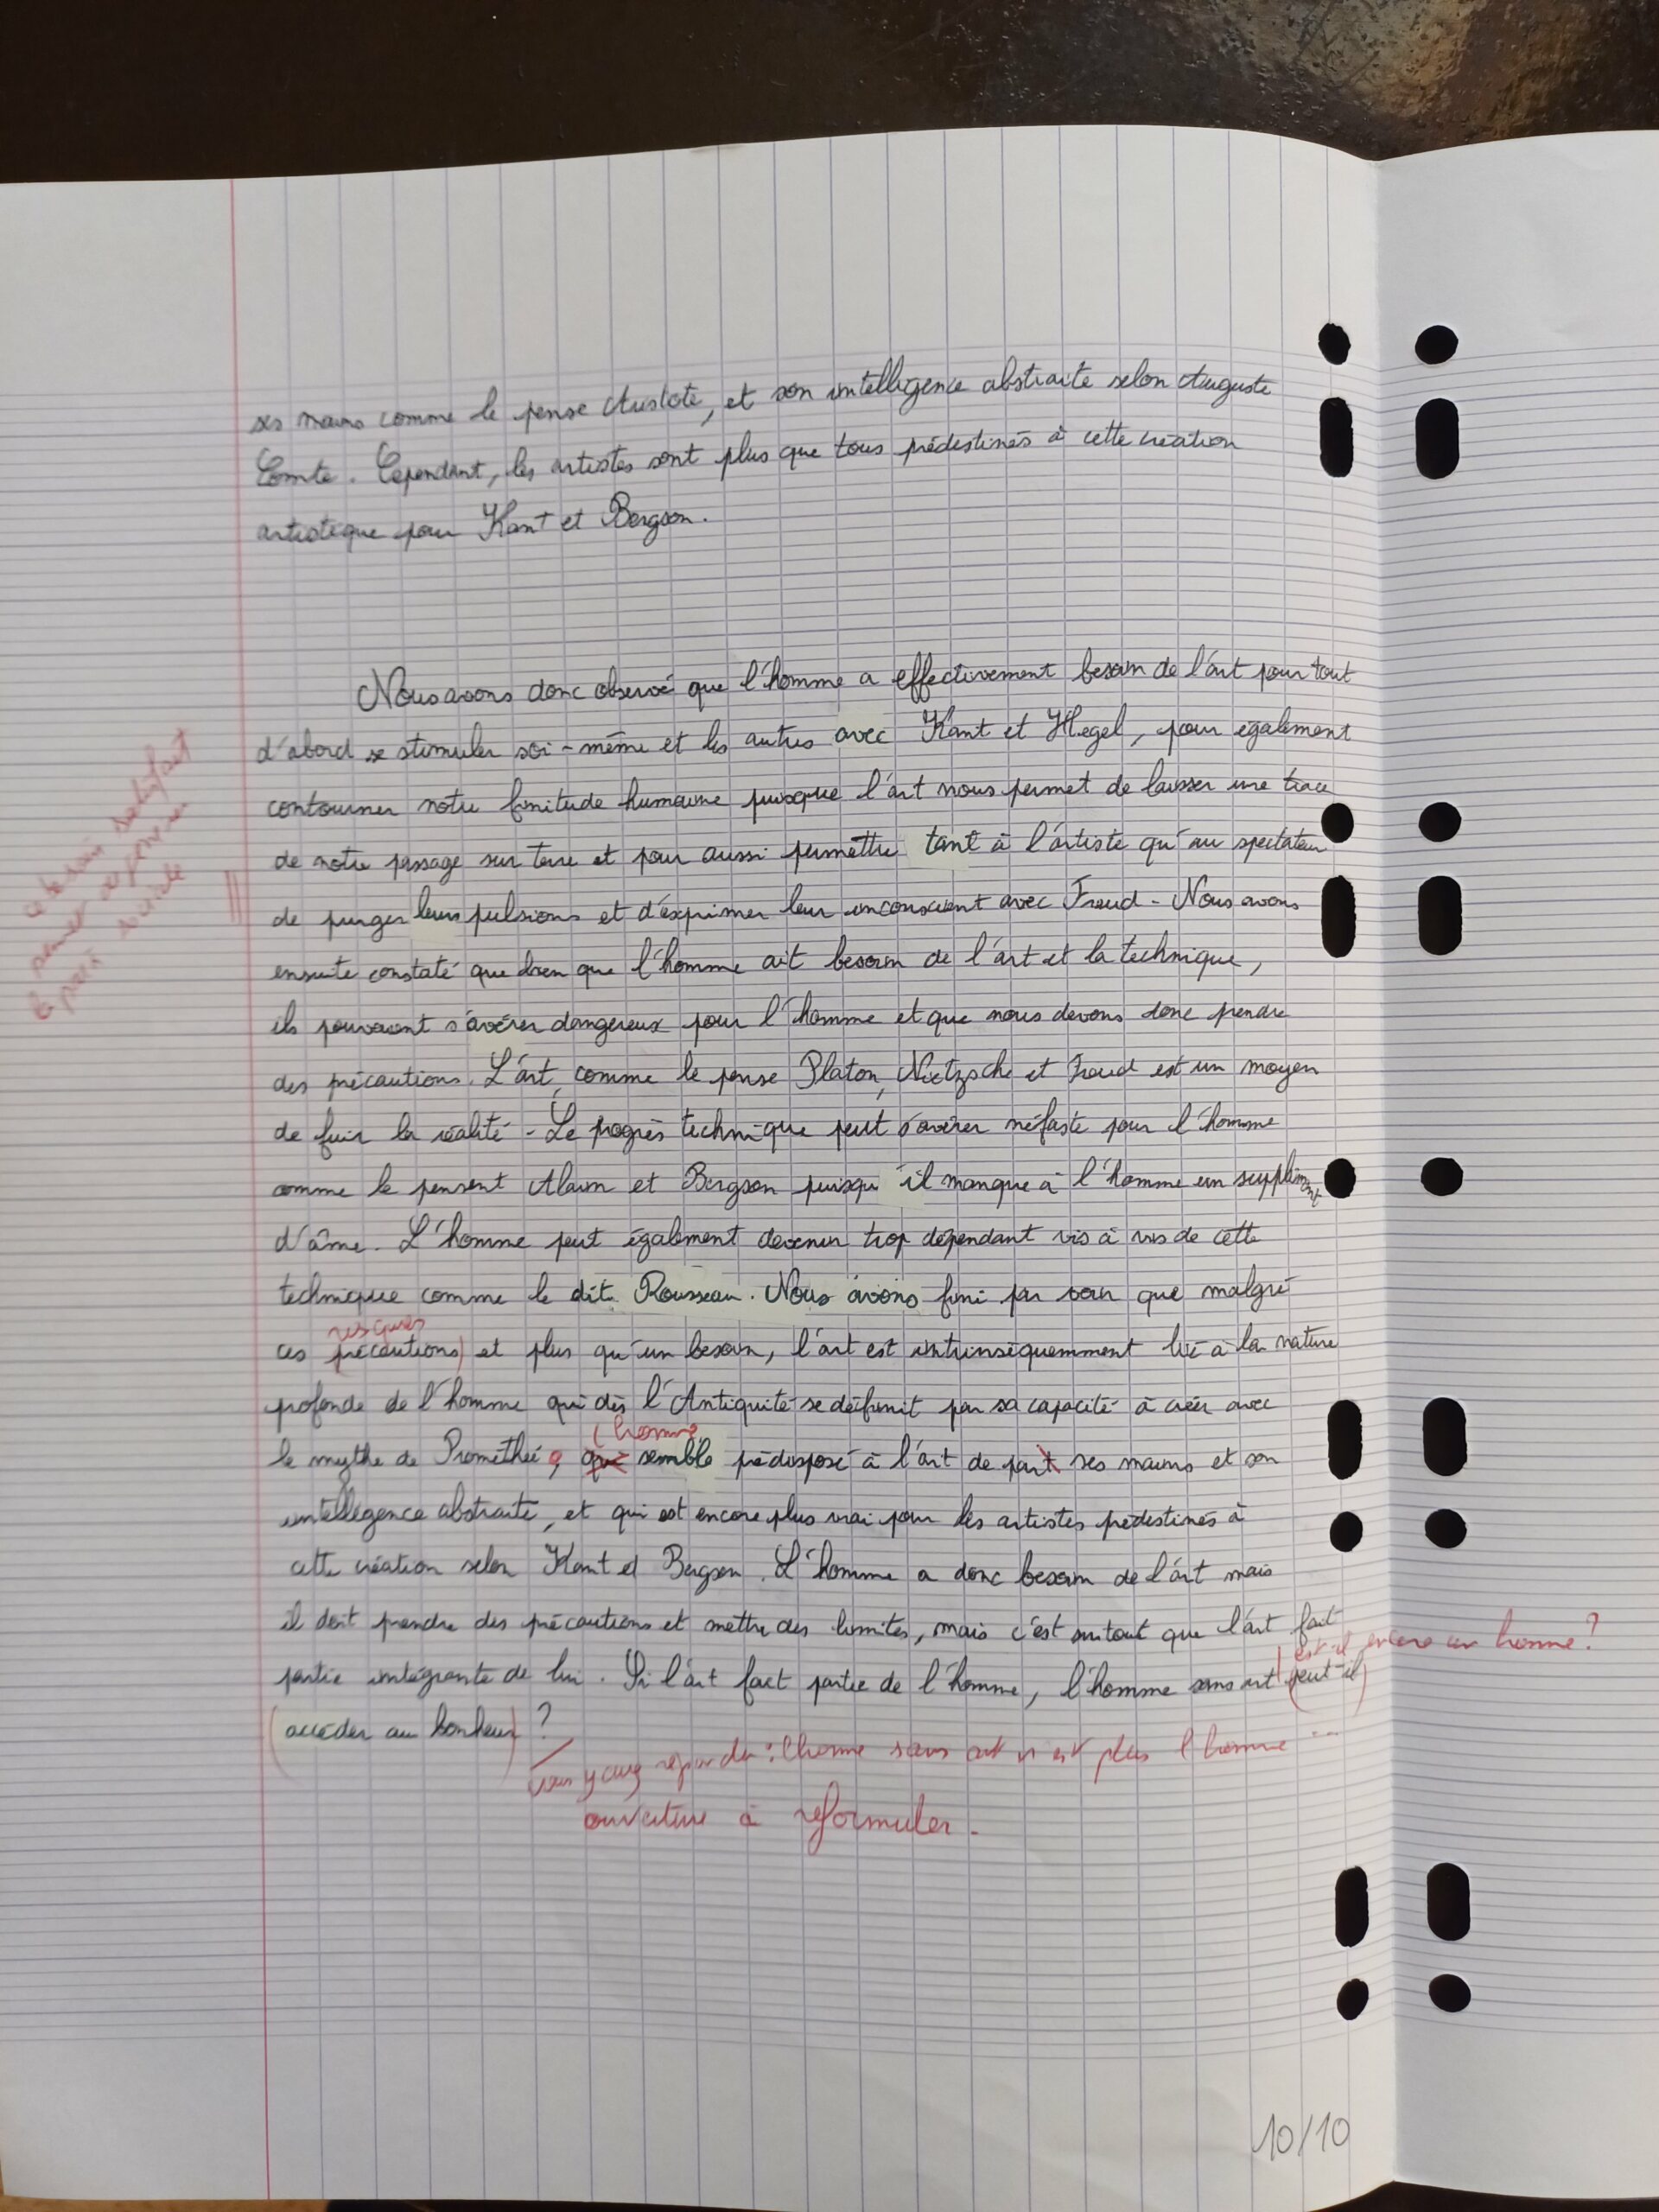 ses mains comme le pense Aristote, et son intelligence abstraite selon Auguste
Comte. Cependant, les artistes sont plus que tous prédestinés à cette création
artistique pour Kant et Bergson.
Nous avons donc observé que l'homme a effectivement besoin de l'art pour tout
d'abord se stimuler soi-même et les autres avec Kant et Hegel, pour également
contourner notre finitude humaine puisque l'art nous permet de laisser une trace
de notre passage sur terre et pour aussi permettre tant à l'artiste qu'au spectateur
ce besoin satisfait
permet
la paix sociale
de purger leurs pulsions et d'exprimer leur inconscient avec Freud. Nous avons
ensuite constaté que bien que l'homme ait besoin de l'art et la technique,
ils pouvaient s'avérer dangereux pour l'homme et que nous devons donc prendre
des précautions. L'art, comme le pense Platon, Nietzsche et Freud est un moyen
de fuir la réalité. Le progrès technique peut s'avérer néfaste pour l'homme
comme le pensent Alain et Bergson puisqu'il manque à l'homme un supplément
d'âme. L'homme peut également devenir trop dépendant vis à vis de cette
technique comme le dit Rousseau. Nous avons fini par voir que malgré
risques
ces précautions) et plus qu'un besoin, l'art est intrinsèquemment lié à la nature
profonde de l'homme qui dès l'Antiquité se définit par sa capacité à créer avec
l'homme
le mythe de Prométhée, qui semble prédisposé à l'art de part ses mains et son
intelligence abstraite, et qui est encore plus vrai pour les artistes prédestinés à
cette création selon Kant et Bergson. L'homme a donc besoin de l'art mais
il doit prendre des précautions et mettre des limites, mais c'est surtout que l'art fait
est-il encore un homme ?
partie intégrante de lui. Si l'art fait partie de l'homme, l'homme sans art (peut-il)
(accéder au bonheur) ?
Vous y avez répondu : l'homme sans art n'est plus l'homme ...
ouverture à reformuler.
10/10